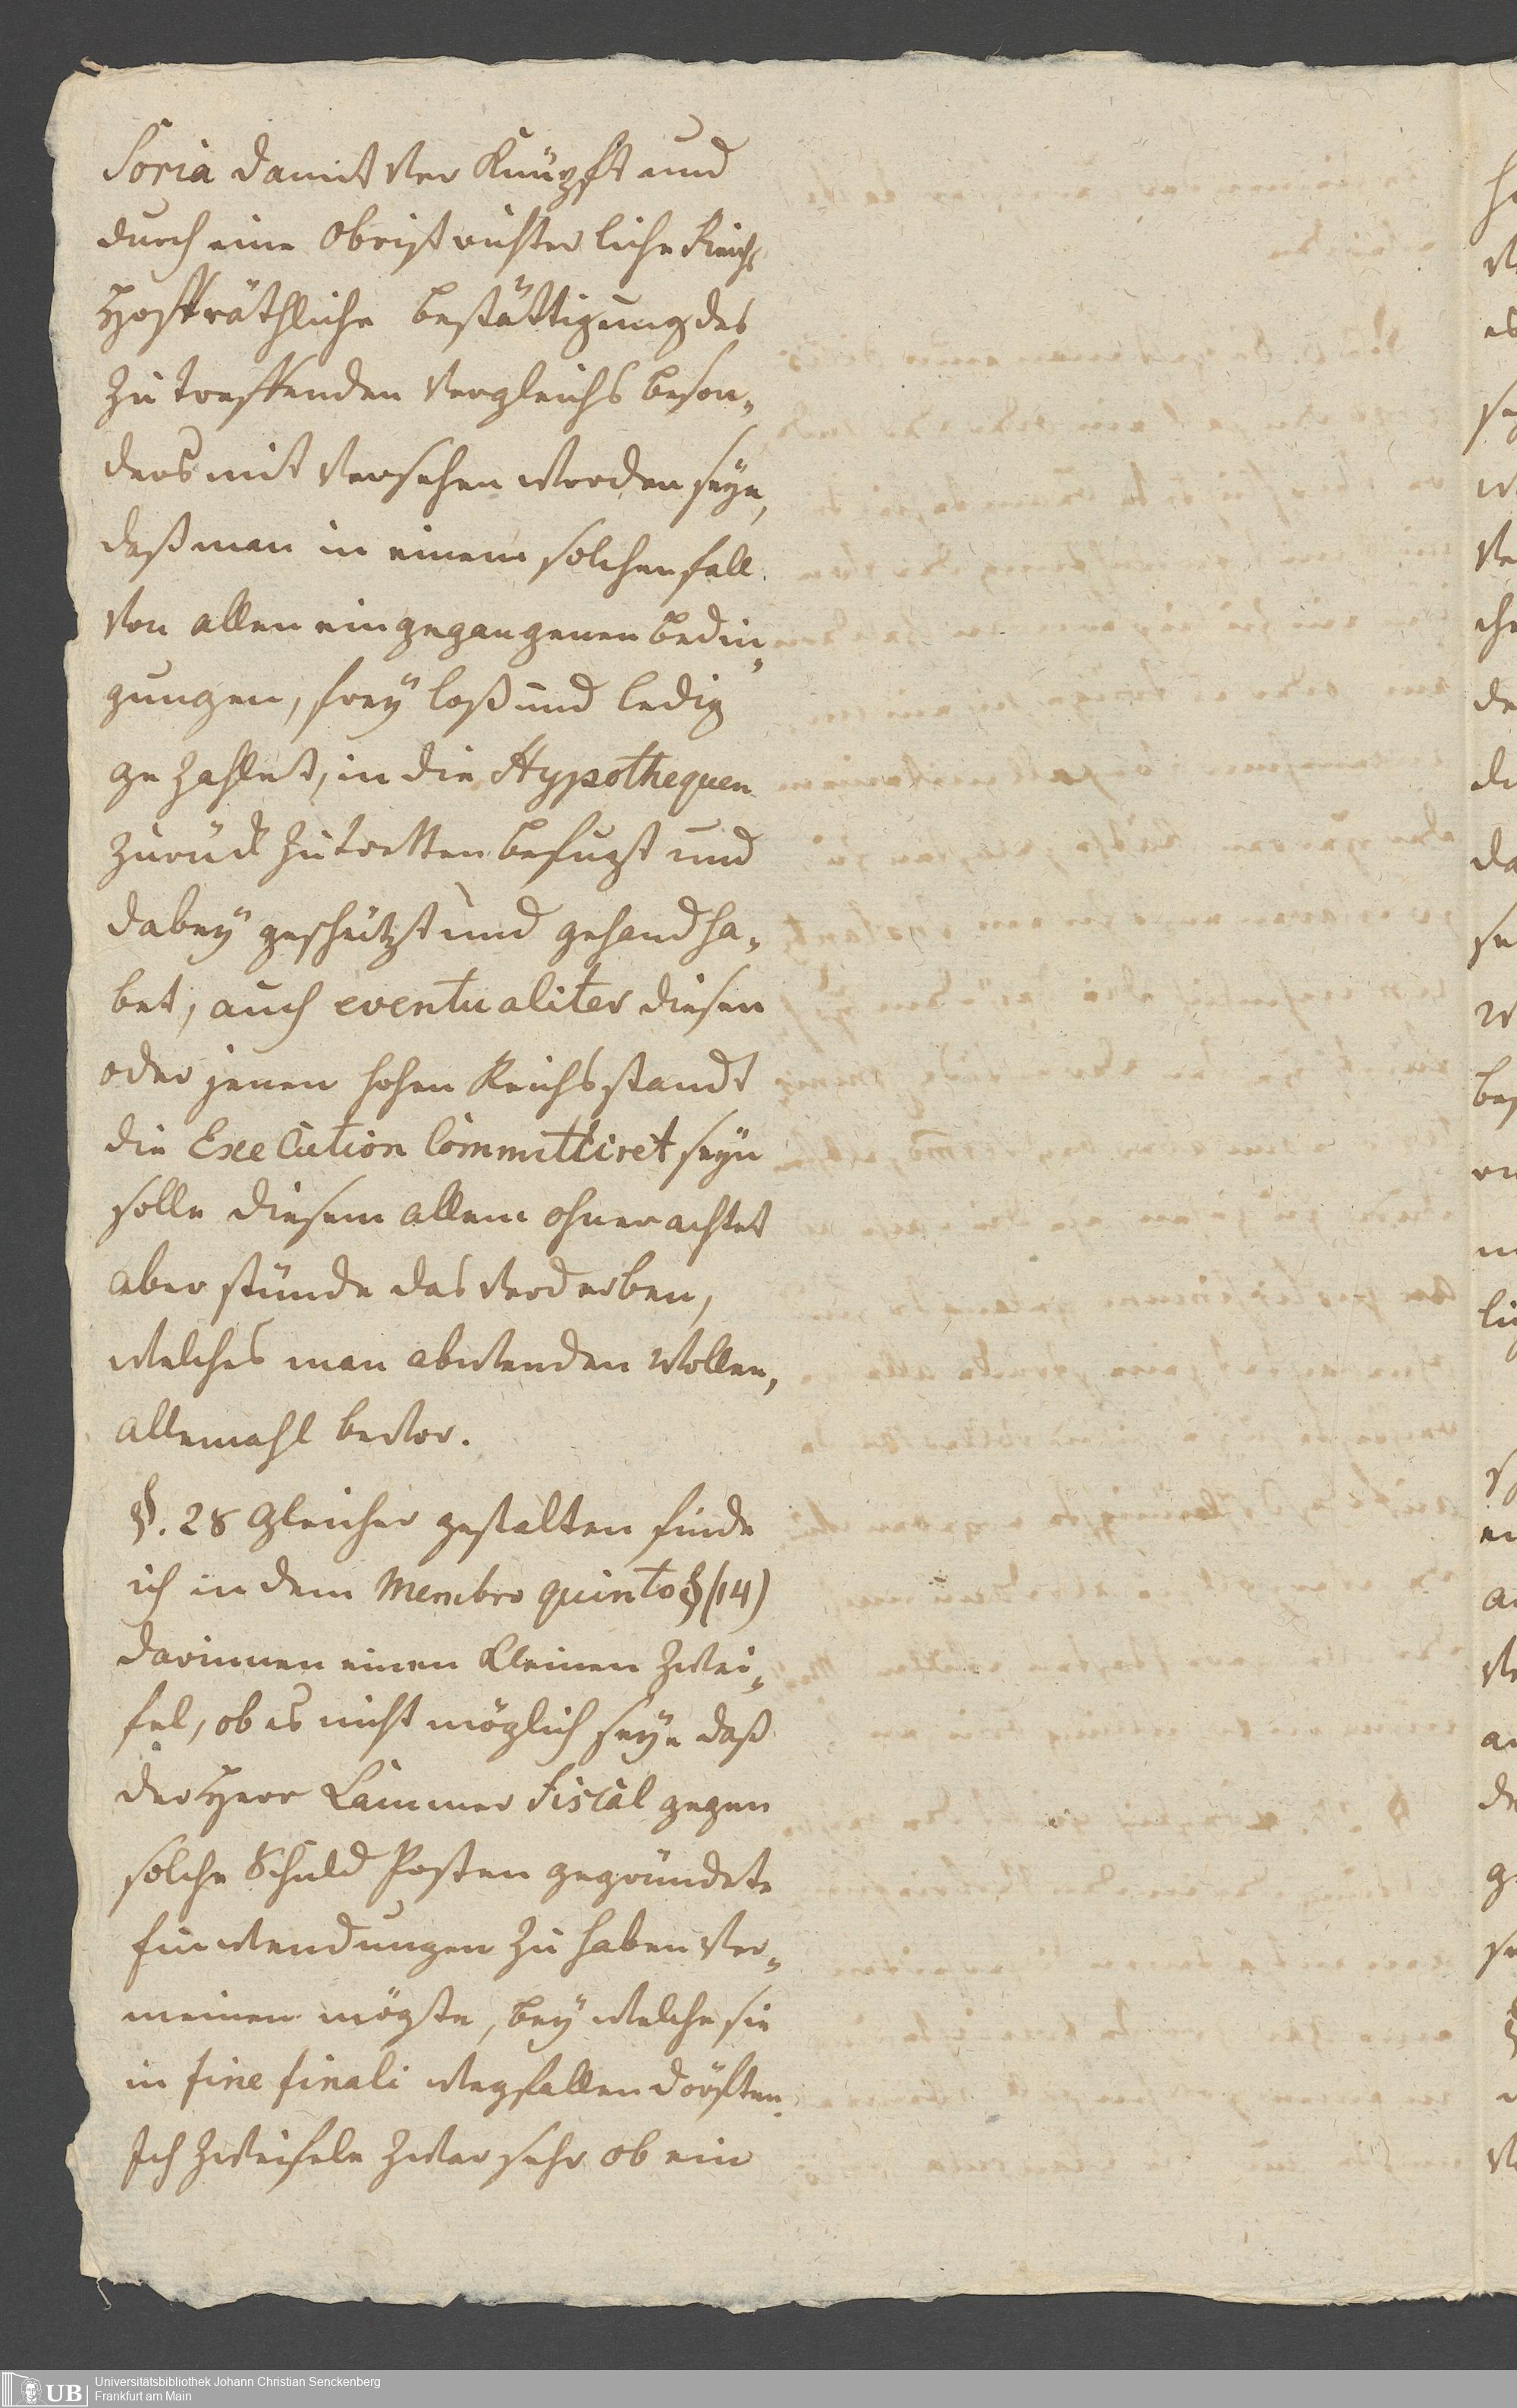 Soria damit ver Knüpft und
durch eine Obristrichter liche Reichs
Hoffräthliche bestättigung des
zu treffenden Vergleichs beson„
ders mit versehen worden seye,
daß man in einem solchen fall
von allen eingegangenen bedin„
gungen, frey loß und ledig
ge zahlet, in die Hypothequen
zurück zu tretten befugt und
dabey geschützt und gehandha„
bet, auch eventualiter diesen
oder jenen hohen Reichsstandt
die Execution Committiret seyn
solle diesem allem ohnerachtet
aber stünde das verderben,
welches man abwenden wollen,
allemahl bevor.
§. 28 Gleicher gestalten finde
ich in dem Membro quinto § (14)
darinnen einen Kleinen Zwei„
fel, ob es nicht möglich seye daß
der Herr Cammer Fiscal gegen
solche Schuld Posten gegründete
Einwendungen zu haben ver„
meinen mögte, bey welche sie
in fine finali wegfallen dörften.
Ich zweifele zwar sehr ob ein
UB Universitätsbibliothek Johann Christian Senckenberg
Frankfurt am Main